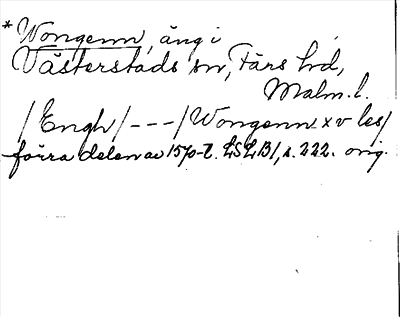 *Wongenn, äng i
Västerstads sn, Färs hd,
Malm. l.
/Engh/ --- /Wongenn xv les/
förra delen av 1570-t. LSLB1, s. 222. orig.